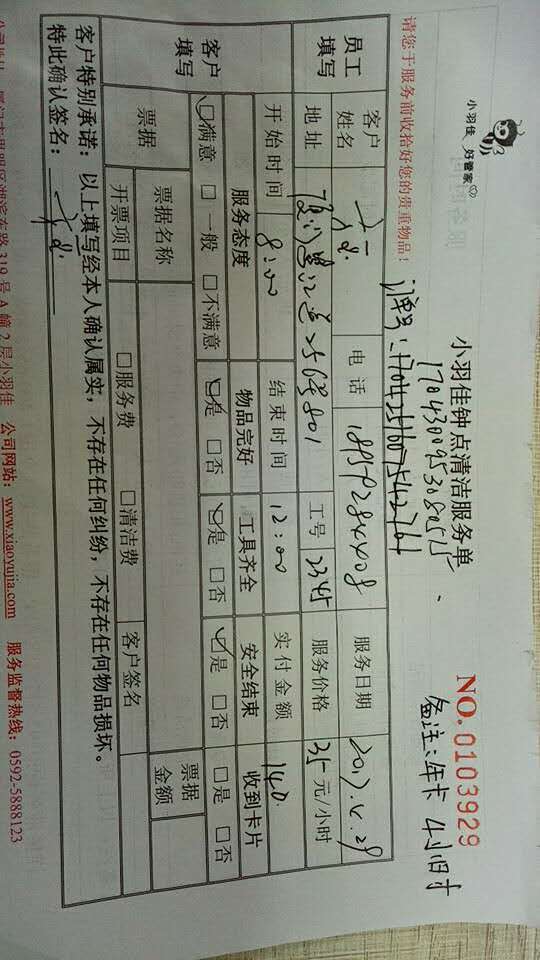 小羽佳 好管家
小羽佳钟点清洁服务单
NO.0103929
备注:年卡 4小时
请您于服务前收拾好您的贵重物品!
员工填写 客户姓名 电话 服务日期 2017.4.28
地址 工号 2345 服务价格 35元/小时
客户填写 开始时间 8:00 结束时间 12:00 实付金额 140
服务态度 物品完好 工具齐全 安全结束 收到卡片
☑满意 □一般 □不满意 ☑是 □否 ☑是 □否 ☑是 □否 □是 □否
票据 票据名称 □服务费 □清洁费 客户签名 票据金额
开票项目
客户特别承诺:以上填写经本人确认属实,不存在任何纠纷,不存在任何物品损坏。
特此确认签名:
319号A幢2层小羽佳 公司网站:www.xiaoyujia.com 服务监督热线:0592-5888123